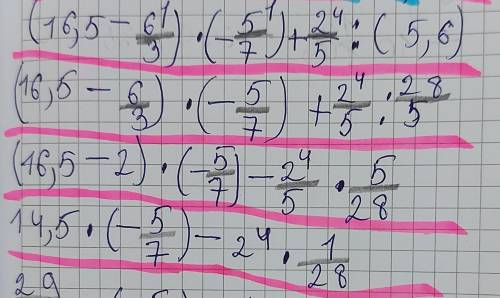 (16,5 − 6¹/3) · (−5¹/7) + 2⁴/5 : (5,6)
(16,5 − 6/3) · (−5/7) + 2⁴/5 : 28/5
(16,5 − 2) · (−5/7) − 2⁴/5 · 5/28
14,5 · (−5/7) − 2⁴ · 1/28
29